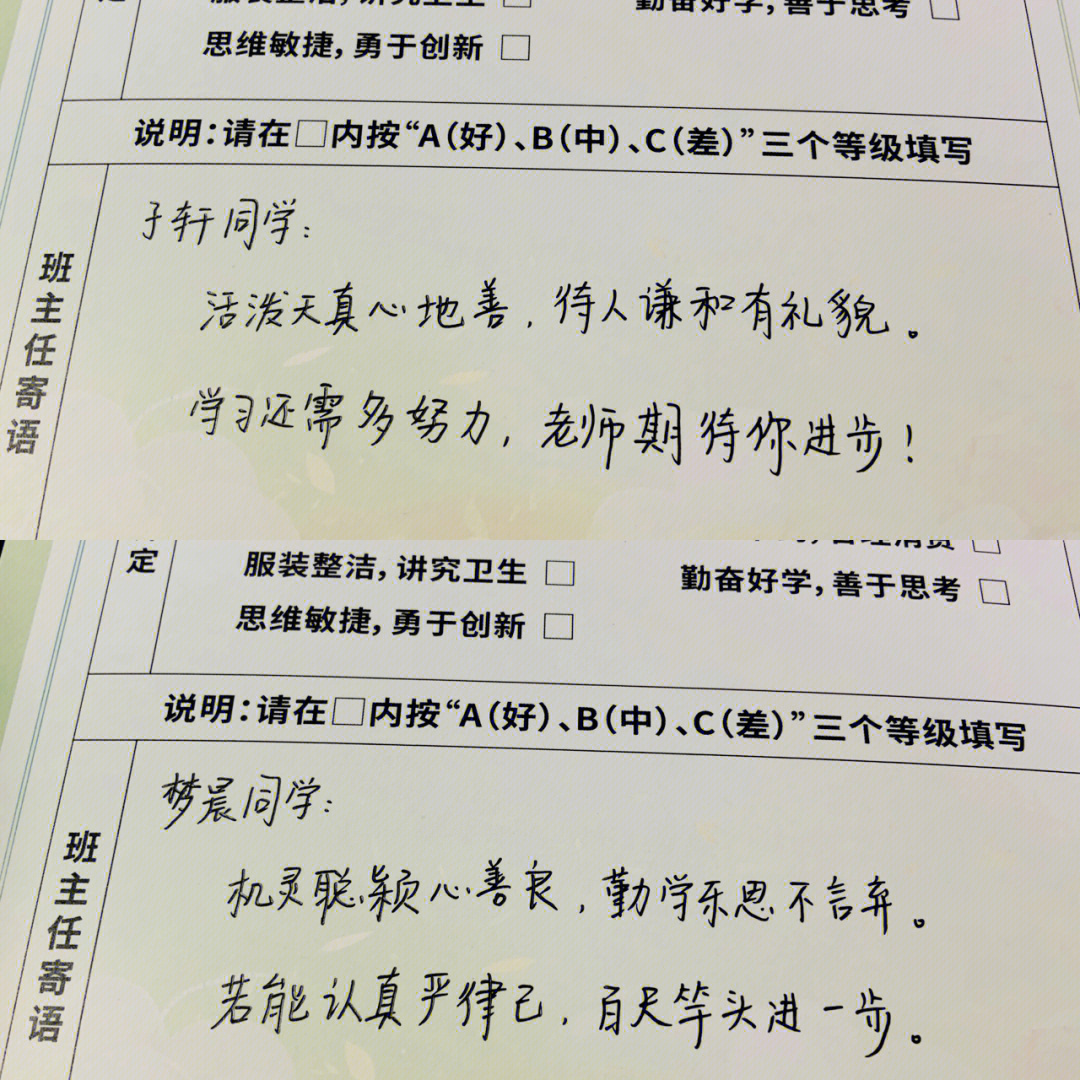 服装整洁，讲究卫生 □ 勤奋好学，善于思考 □
思维敏捷，勇于创新 □
说明：请在□内按“A（好）、B（中）、C（差）”三个等级填写
班主任寄语
子轩同学：
活泼天真心地善，待人谦和有礼貌。
学习还需多努力，老师期待你进步！
定
服装整洁，讲究卫生 □ 勤奋好学，善于思考 □
思维敏捷，勇于创新 □
说明：请在□内按“A（好）、B（中）、C（差）”三个等级填写
班主任寄语
梦晨同学：
机灵聪颖心善良，勤学乐思不言弃。
若能认真严律己，百尺竿头进一步。